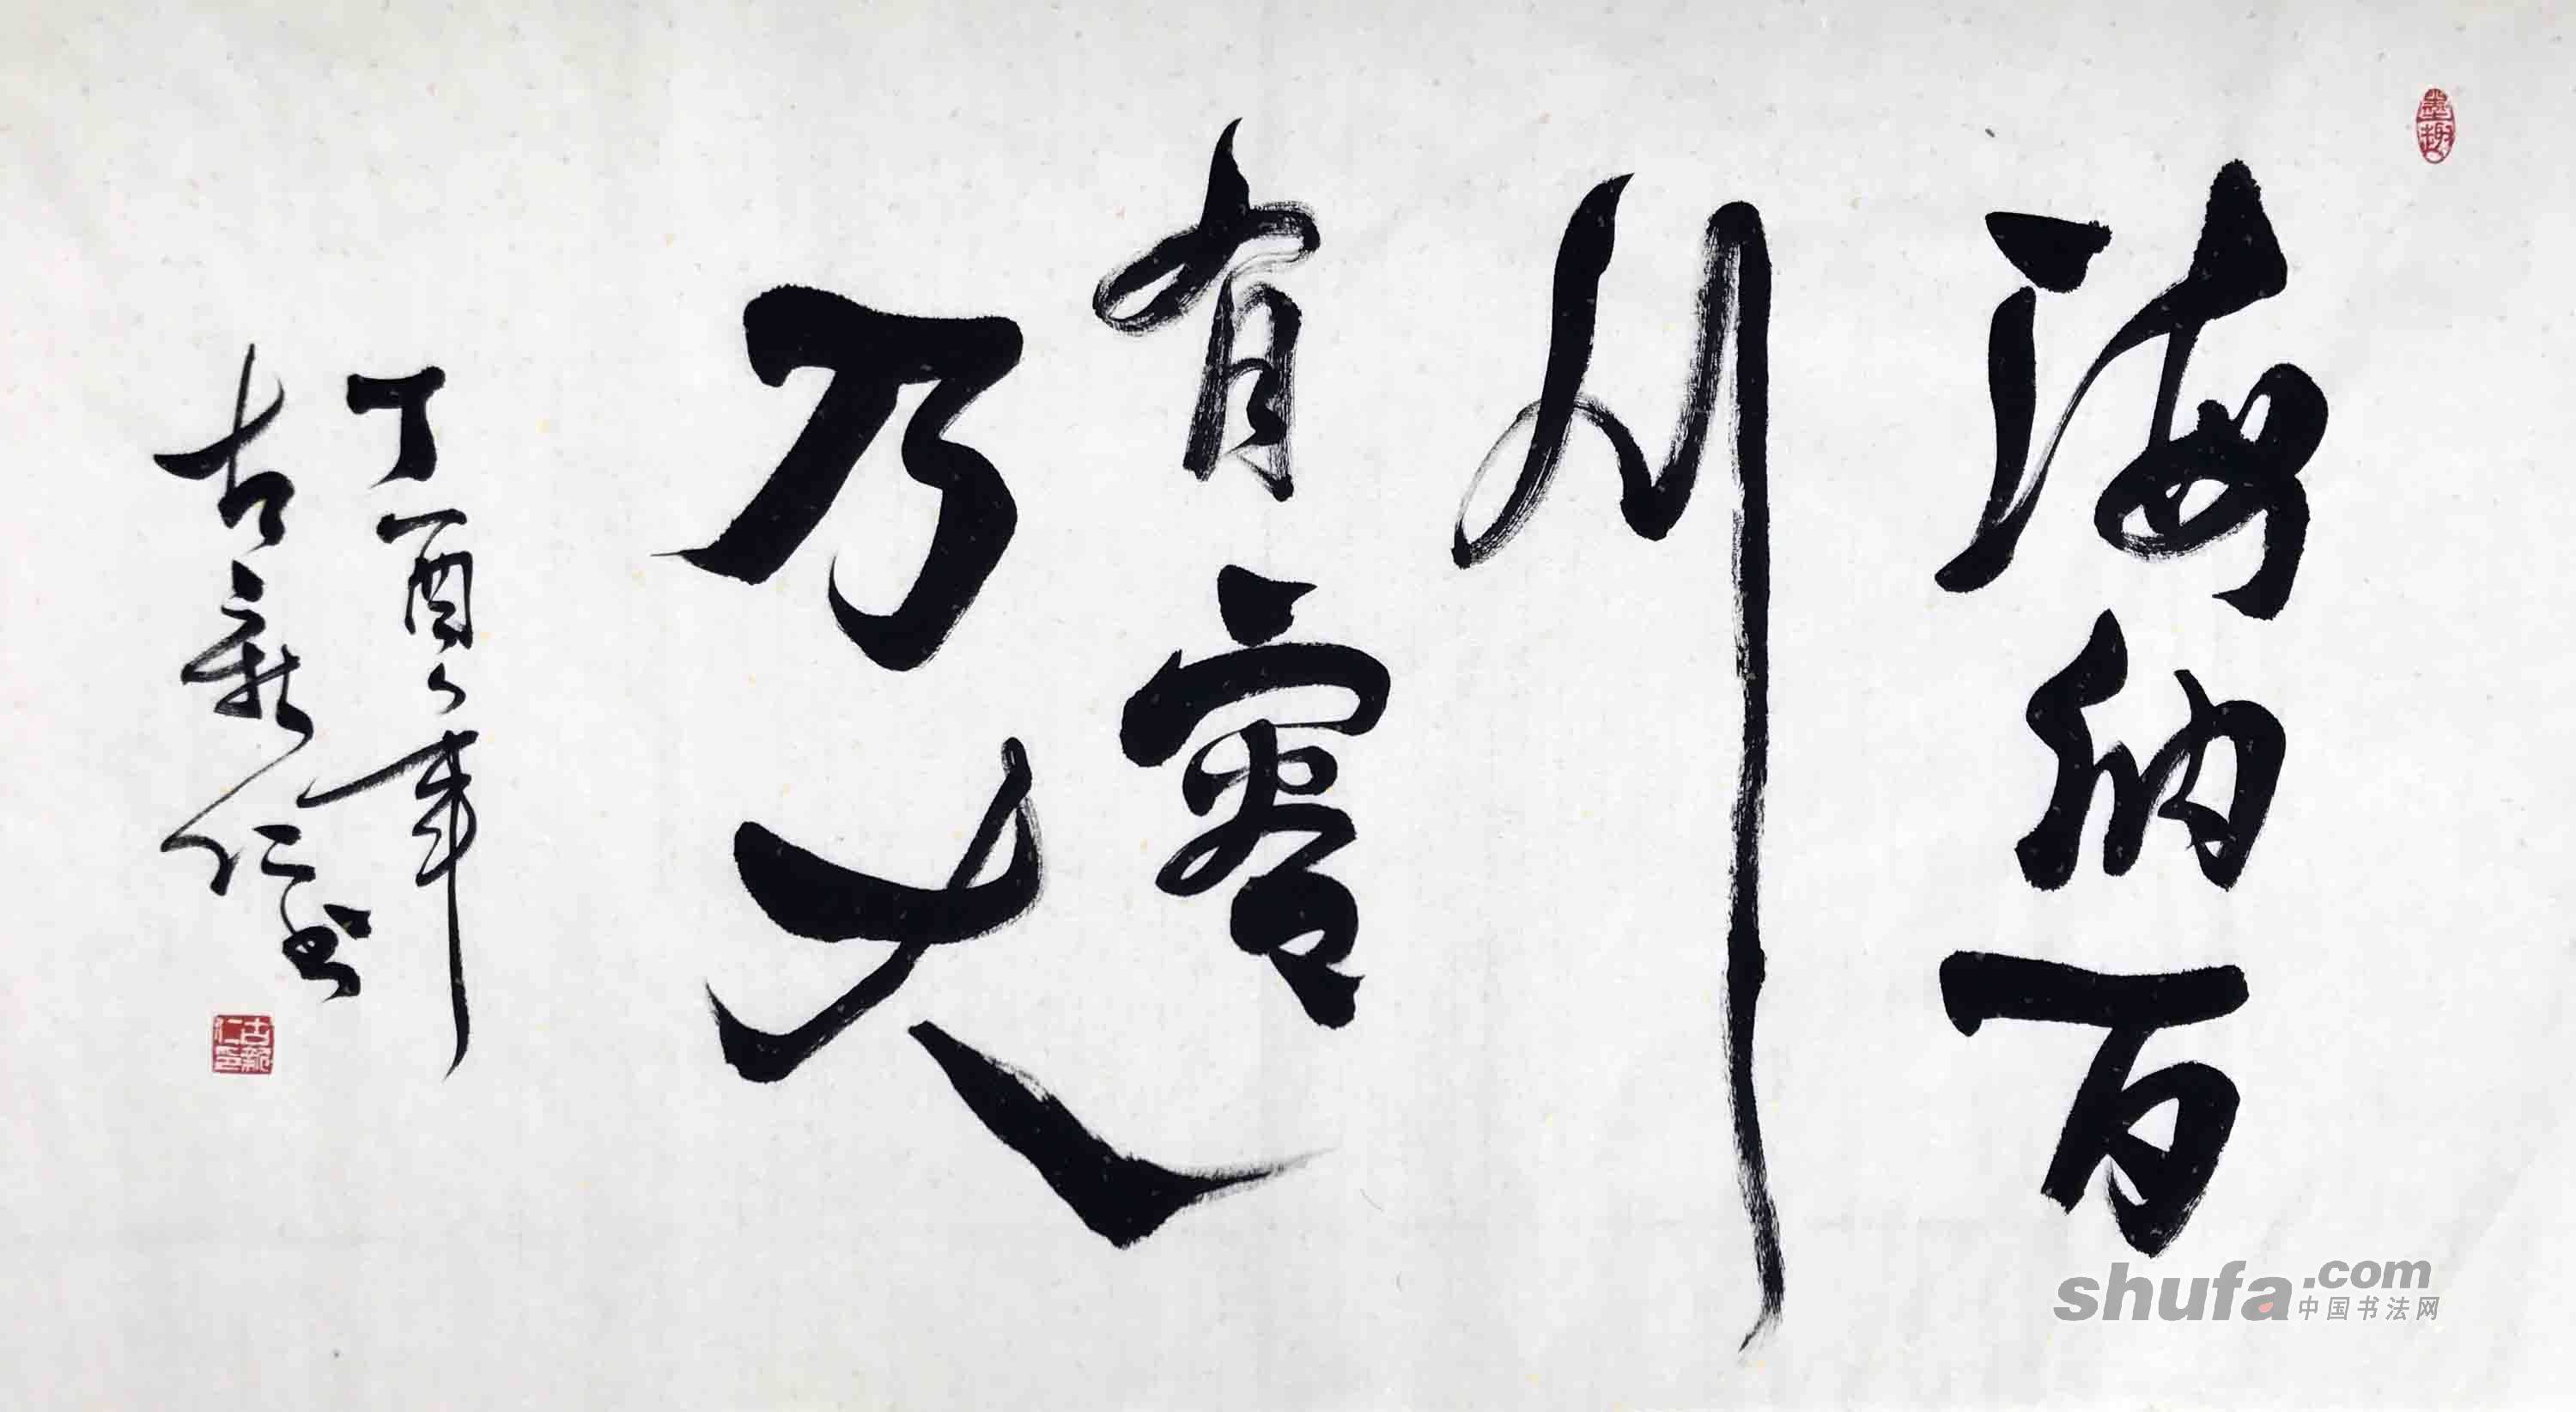 海纳百
川
有容
乃大
丁酉年
古新仁书
墨趣
古新仁印
shufa.com
中国书法网